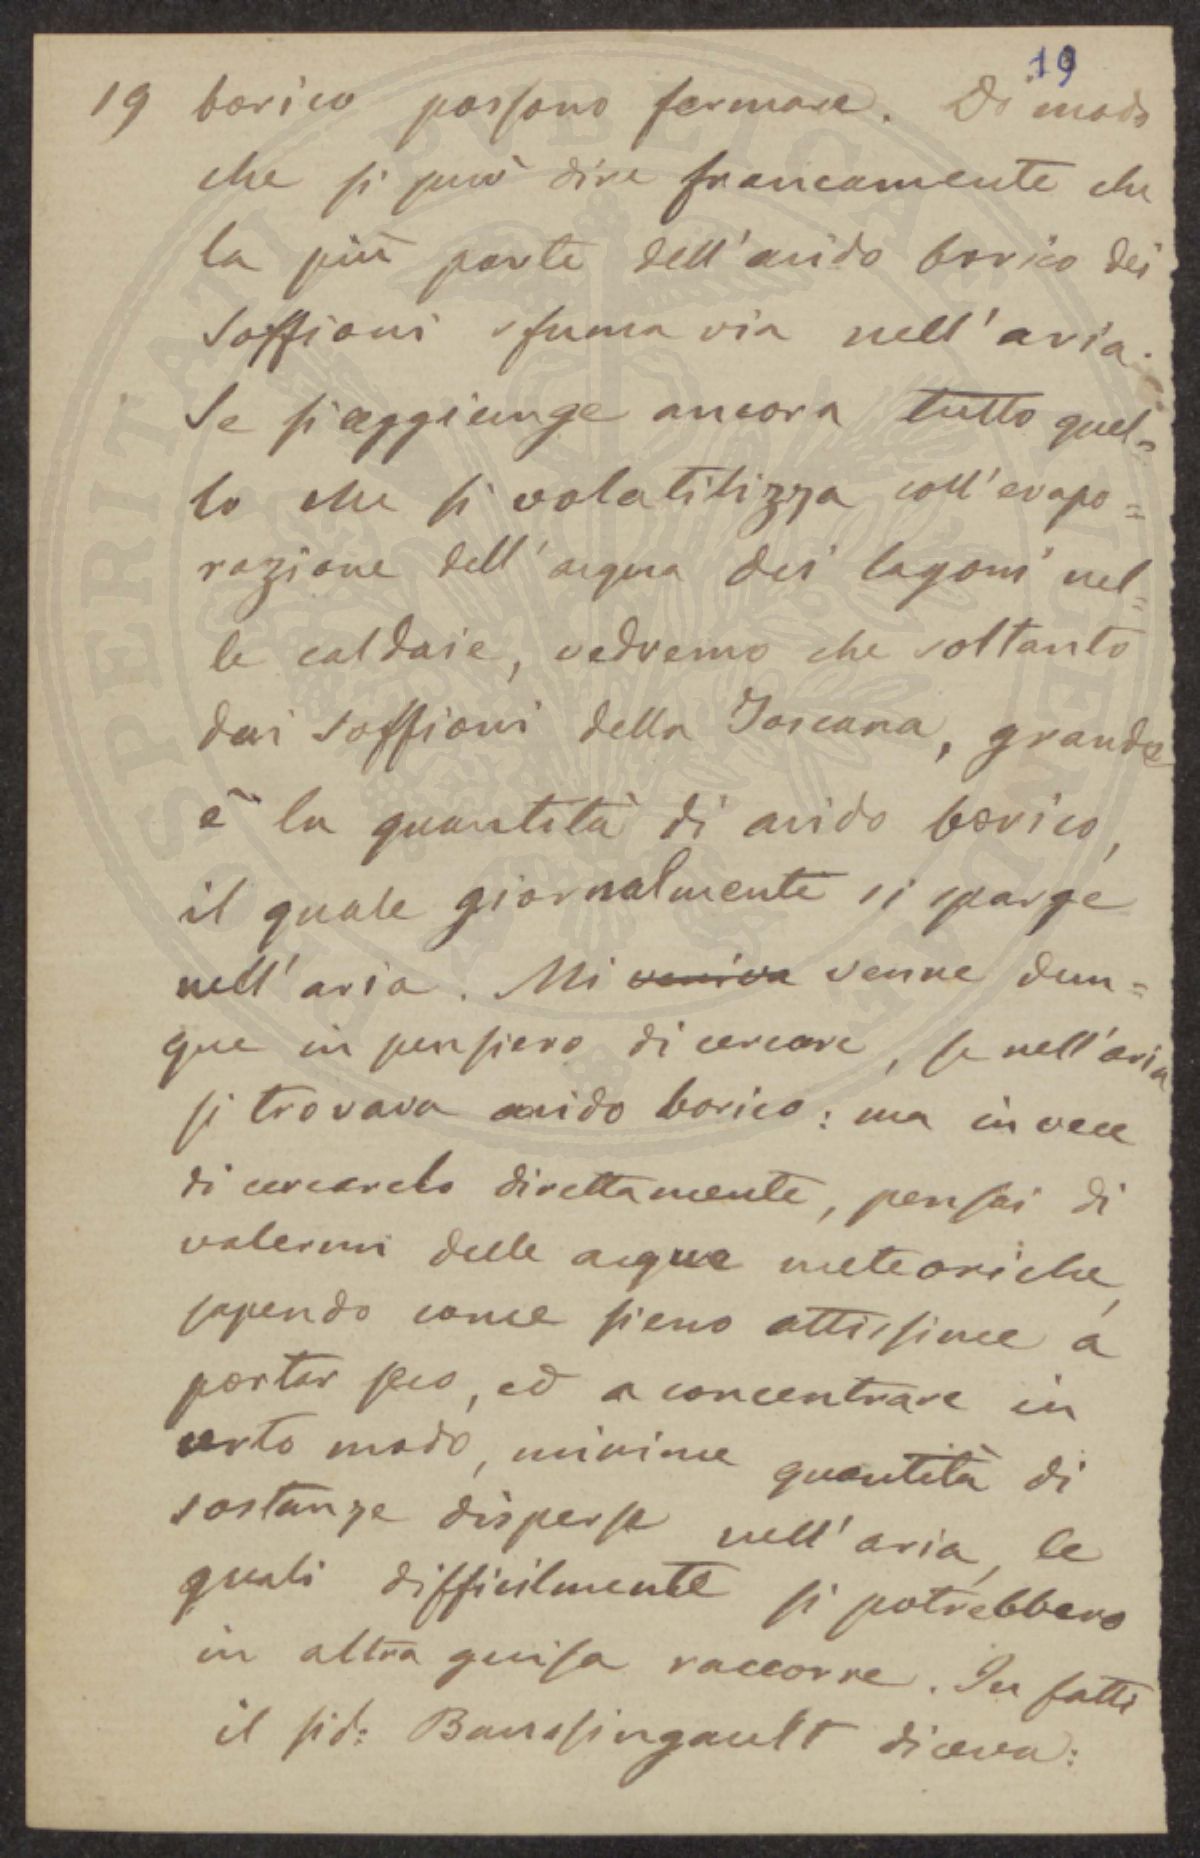 19
19 borico possono formare. Di modo
che si può dire francamente che
la più parte dell'acido borico dei
Soffioni sfuma via nell'aria.
Se si aggiunge ancora tutto quel=
lo che si volatilizza coll'evapo=
razione dell'acqua dei lagoni nel=
le caldaie, vedremo che soltanto
dai Soffioni della Toscana, grande
è la quantità di acido borico,
il quale giornalmente si sparge
nell'aria. Mi veniva venne dun=
que in pensiero di cercare, se nell'aria
si trovava acido borico: ma in vece
di cercarelo direttamente, pensai di
valermi delle acque meteoriche,
sapendo come sieno attissime a
portar seco, ed a concentrare in
certo modo, minime quantità di
sostanze disperse nell'aria, le
quali difficilmente si potrebbero
in altra guisa raccorre. In fatti
il sid: Bousingault diceva:
PROSPERITATI PVBLICAE AVGENDAE